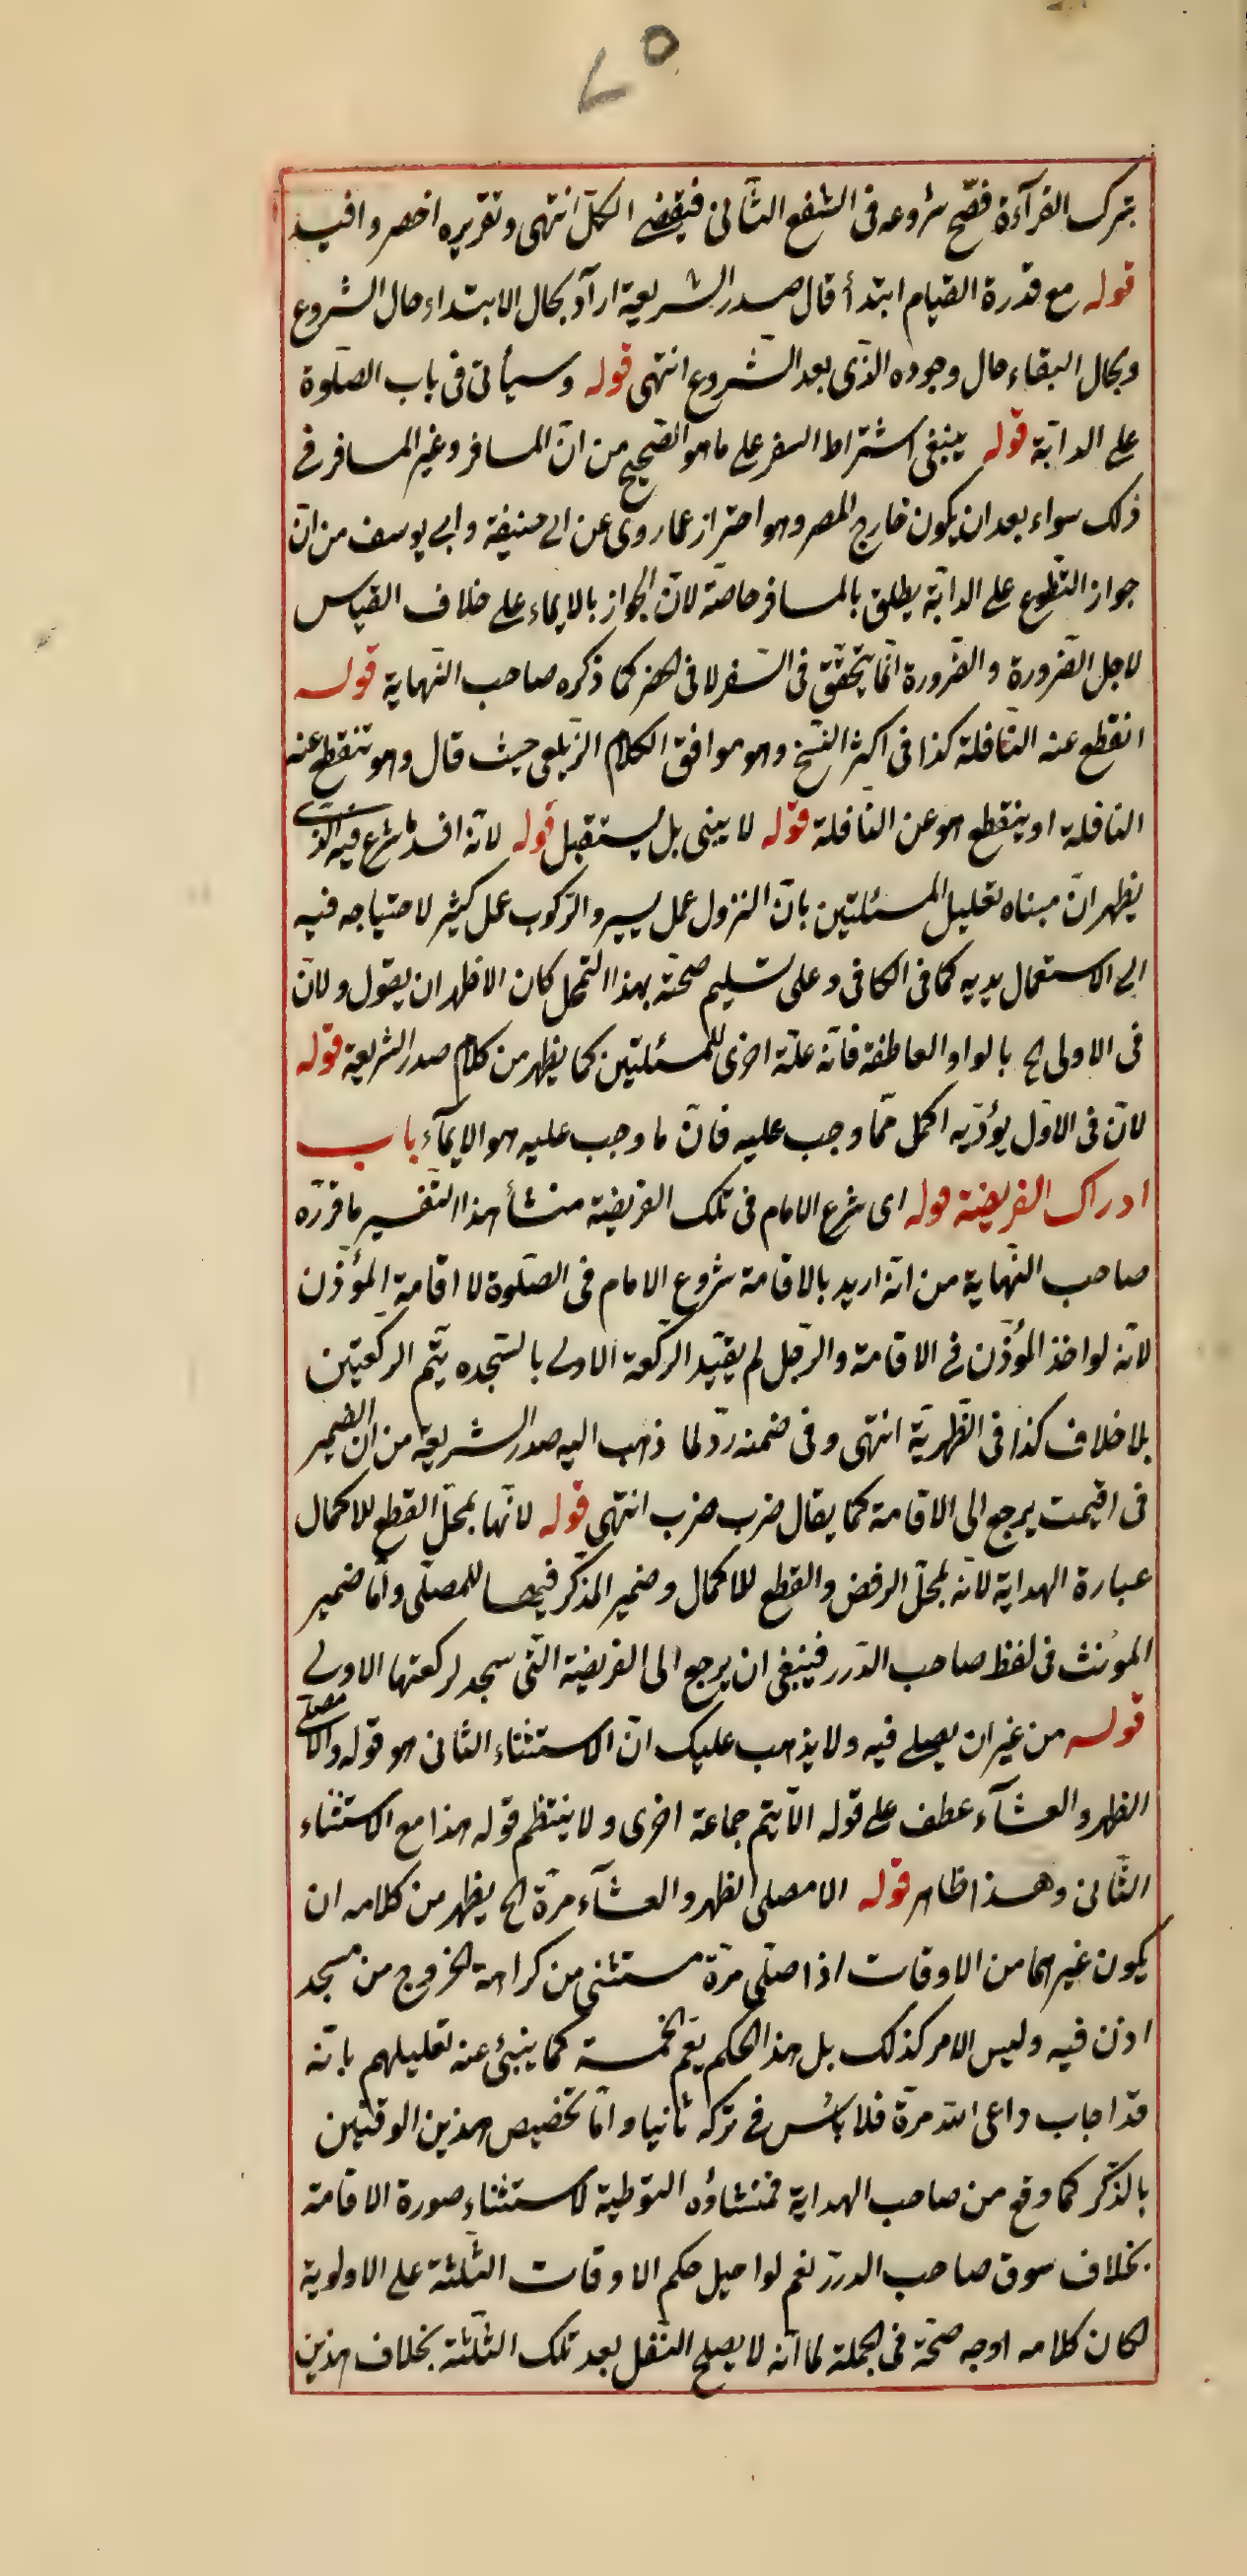 ٧٥
بترك القرآءة فصّح شروعه فى الشفع الثّانى فيقضى الكلّ انتهى وتقريره اخصر وافيد
قوله مع قدرة القيام ابتدأ قال صدر الشريعة ارآد بحال الابتداء حال الشروع
وبحال البقاء حال وجوده الذّى بعد الشروع انتهى قوله وسيأتى فى باب الصلوة
على الدابّة قوله ينبغى اشتراط السفر على ما هو الصّحيح من انّ المسافر وغير المسافر فى
ذلك سواء بعد ان يكون خارج المصر وهو احتراز عما روى عن ابى حنيفة وابى يوسف من انّ
جواز التطّوع على الدابّة يطلق بالمسافر خاصّة لانّ الجواز بالايماء على خلاف القياس
لاجل الضّرورة والضّرورة انّما يتحقّق فى السّفر لا فى الحضر كما ذكره صاحب النّهاية قوله
انقطع عنه النّافلة كذا فى اكثر النسّخ وهو موافق الكلام الزّيلعى حيث قال وهو تنقطع عنه
النافلة او ينقطع هو عن النافلة قوله لا يبنى بل يستقبل قوله لانّه افسد ما شرع فيه الذى
يظهر انّ مبناه تعليل المسئلتين بانّ النزول عمل يسير والرّكوب عمل كثير لاحتياجه فيه
الى الاستعمال يديه كما فى الكافى وعلى تسليم صحّته بهذا التمحّل كان الاظهر ان يقول ولانّ
فى الاولى الخ بالواو العاطفة فانّه علّة اخرى للمسئلتين كما يظهر من كلام صدر الشريعة قوله
لانّ فى الاوّل يؤدّيه اكمل ممّا وجب عليه فانّ ما وجب عليه هو الايمآء باب
ادراك الفريضة قوله اى شرع الامام فى تلك الفريضة منشأ هذا التّفسير ما قرّره
صاحب النّهاية من انّه اريد بالاقامة شروع الامام فى الصّلوة لا اقامة المؤذّن
لانّه لو اخذ المؤذّن فى الاقامة والرّجل لم يقيّد الرّكعة الاولى بالسّجده يتّم الركعتين
بلا خلاف كذا فى الظّهريّة انتهى وفى ضمنه ردّ لما ذهب اليه صدر الشريعة من ان الضمير
فى اقيمت يرجع الى الاقامة كما يقال ضرب ضرب انتهى قوله لانّها بمحلّ القطع للاكمال
عبارة الهداية لانّه بمحلّ الرفض والقطع للاكمال وضمير المذكّر فيها للمصلّى وامّا ضمير
المؤنث فى لفظ صاحب الدّرر فينبغى ان يرجع الى الفريضة التّى سجد لركعتها الاولى
قوله من غير ان يصلى فيه ولا يذهب عليك انّ الاستثناء الثّانى هو قوله والا مصلى
الظهر والعشآء عطف على قوله الّا يتم جماعة اخرى ولا ينتظم قوله هذا مع الاستثناء
الثّانى وهذا ظاهر قوله الا مصلى الظهر والعشآء مرّة الخ يظهر من كلامه ان
يكون غيرهما من الاوقات اذا صلّى مرّة مستثنى من كراهة الخروج من مسجد
اذن فيه وليس الامر كذلك بل هذا الحكم يعّم الخمسة كما ينبئ عنه تعليلهم بانّه
قد اجاب داعى الله مرّة فلا بأس فى تركه ثانيا وامّا تخصيص هذين الوقتين
بالذّكر كما وقع من صاحب الهداية فمنشاؤه التوطية لاستثناء صورة الاقامة
بخلاف سوق صاحب الدرر نعم لو احيل حكم الاوقات الثّلثة على الاولوية
لكان كلامه اوجه صحّة فى الجملة لما انّه لا يصلح التنفل بعد تلك الثّلثة بخلاف هذين